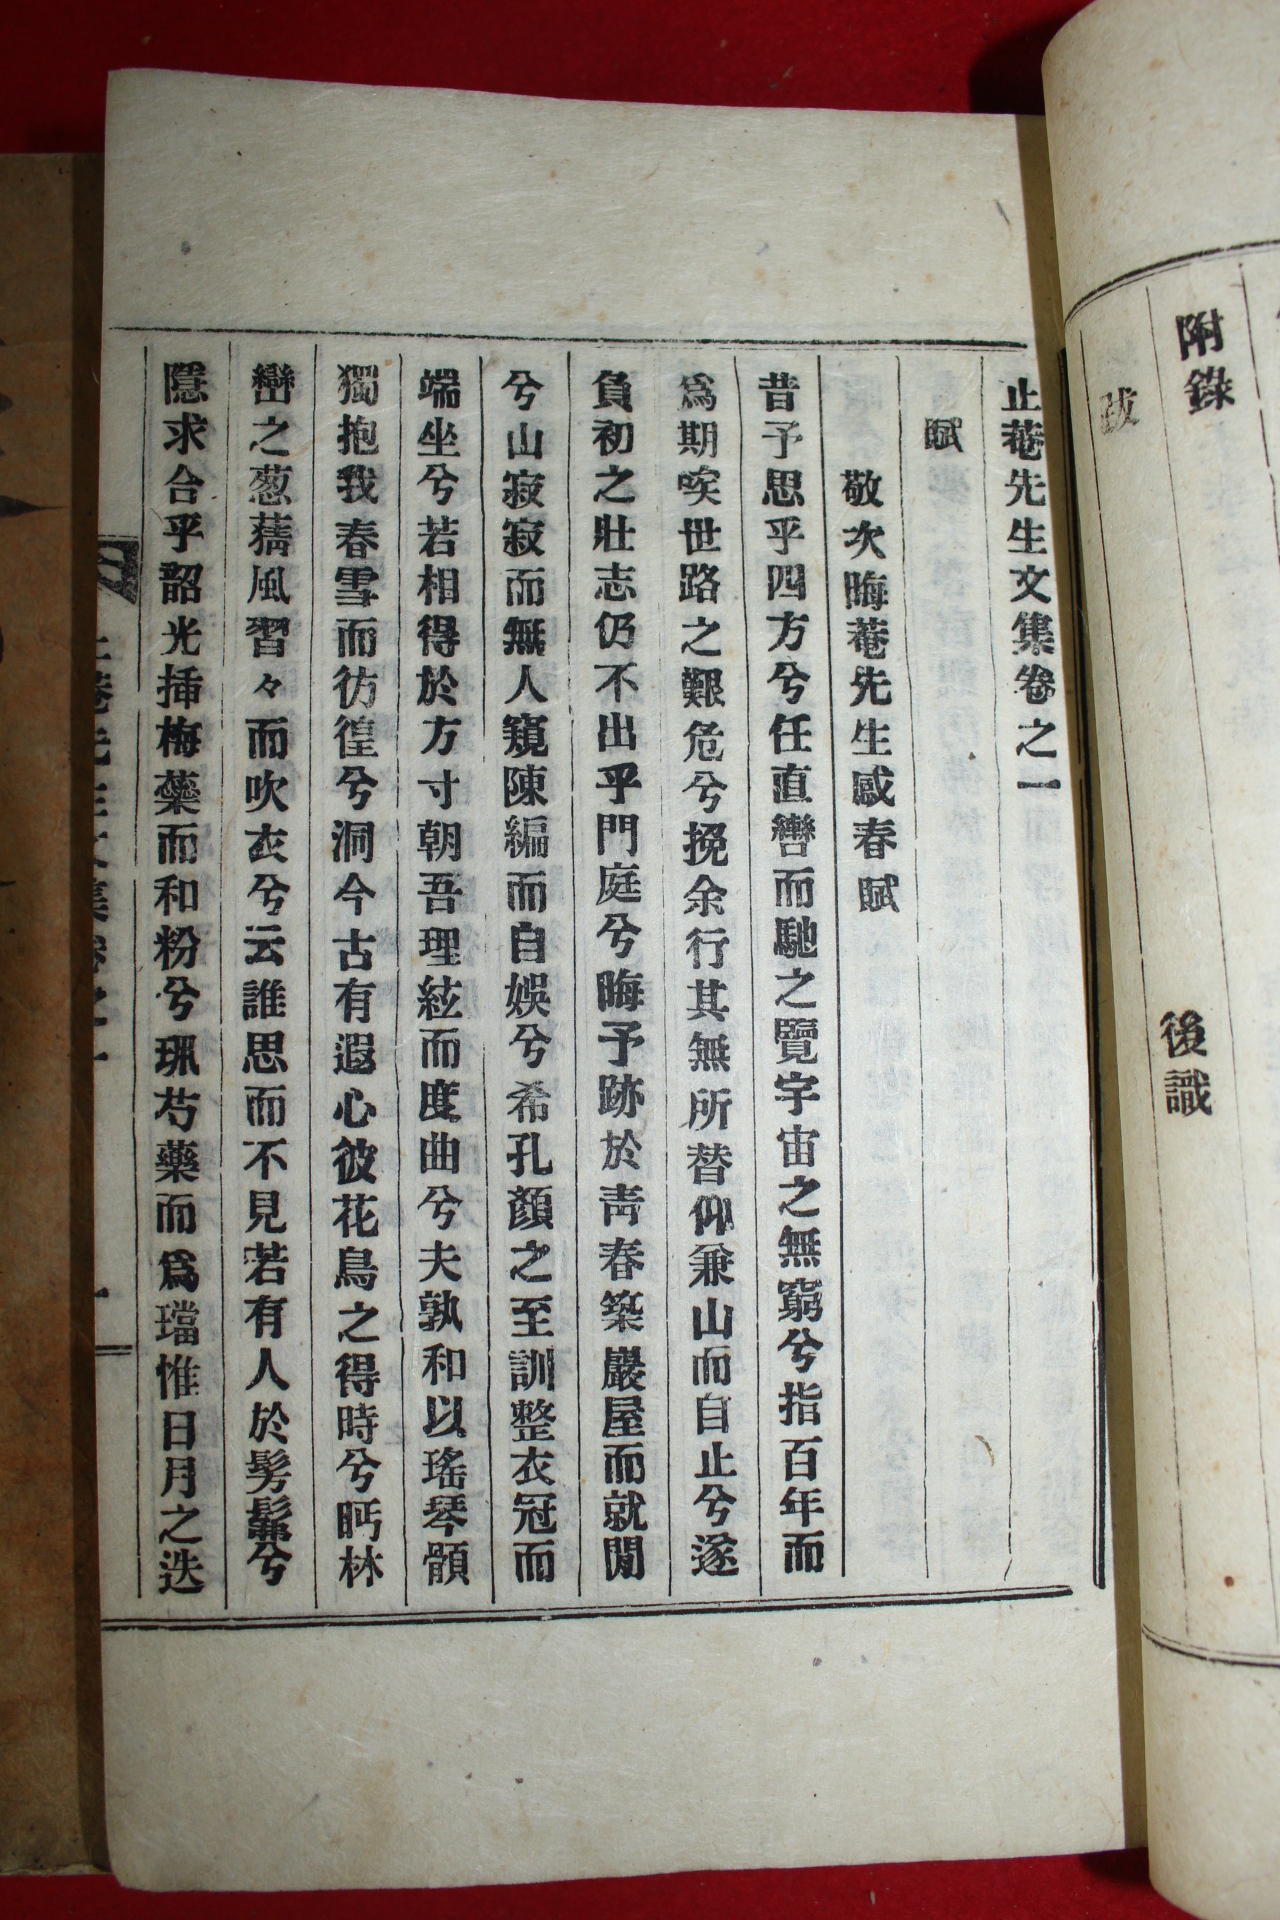 附錄
跋
後識
止菴先生文集卷之一
賦
敬次晦菴先生感春賦
昔予思乎四方兮任直轡而馳之覽宇宙之無窮兮指百年而
爲期唉世路之艱危兮挽余行其無所替仰兼山而自止兮遂
負初之壯志仍不出乎門庭兮晦予跡於靑春築巖屋而就閒
兮山寂寂而無人窺陳編而自娛兮希孔顏之至訓整衣冠而
端坐兮若相得於方寸朝吾理絃而度曲兮夫孰和以瑤琴顦
獨抱我春雪而彷徨兮洞今古有遐心彼花鳥之得時兮眄林
巒之葱蒨風習々而吹衣兮云誰思而不見若有人於髣髴兮
隱求合乎韶光揷梅蘂而和粉兮珮芍藥而爲璫惟日月之迭
止菴先生文集卷之一
一